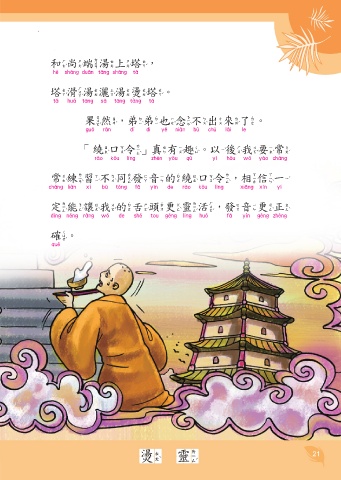 和尚端湯上塔，
hé shàng duān tāng shàng tǎ
塔滑湯灑湯燙塔。
tǎ huá tāng sǎ tāng tàng tǎ
果然，弟弟也念不出來了。
guǒ rán dì di yě niàn bù chū lái le
「繞口令」真有趣。以後我要常
rào kǒu lìng zhēn yǒu qù yǐ hòu wǒ yào cháng
常練習不同發音的繞口令，相信一
cháng liàn xí bù tóng fā yīn de rào kǒu lìng xiāng xìn yí
定能讓我的舌頭更靈活，發音更正
dìng néng ràng wǒ de shé tou gèng líng huó fā yīn gèng zhèng
確。
què
燙 靈
21